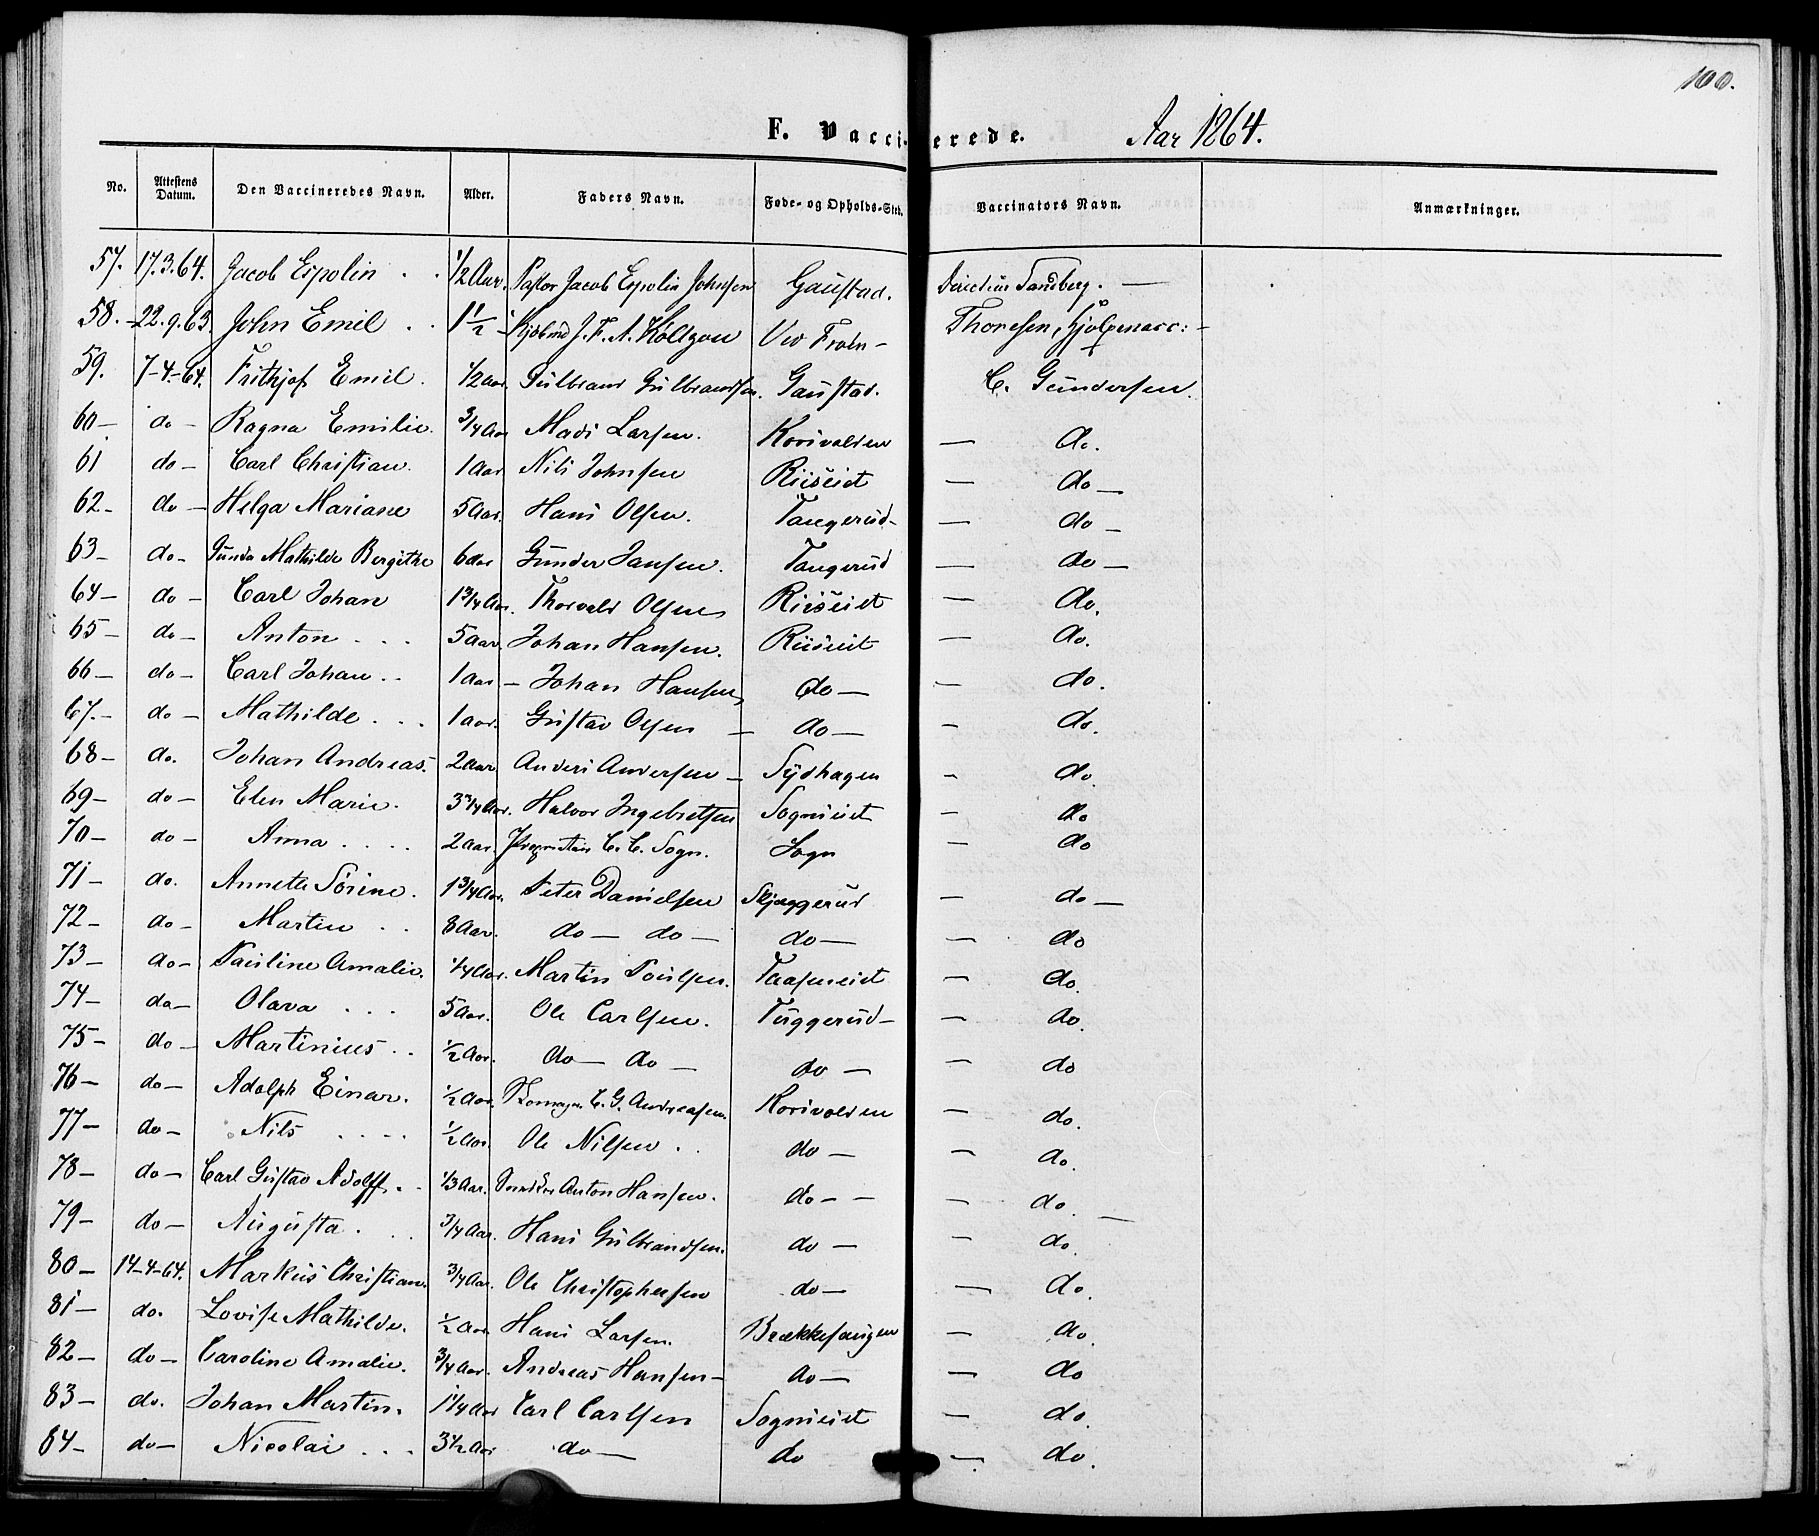 100.
F. Vaccinerede. Aar 1864.
No. Attestens Datum. Den Vaccineredes Navn. Alder. Faders Navn. Føde- og Opholds-Sted. Vaccinators Navn. Anmærkninger.
57. 17.3.64. Jacob Espolin . . 1/2 Aar. Pastor Jacob Espolin Johnsen Gaustad. Directeur Sandberg. —
58. - 22.9.63. John Emil . . 1 1/2 - Kjøbmd J. F. A. Høltzen Ved Froen - Thoresen, Hjælpevacc: -
59. 7-4-64. Frithjof Emil . 1/2 aar Gulbrand Gulbrandsen. Gaustad. C. Gundersen.
60 - do - Ragna Emilie. 3/4 Aar Mads Larsen. Korsvolden — do.
61 do - Carl Christian. 1 Aar Nils Johnsen Riiseiet — do —
62. - do - Helga Mariane 5 Aar. Hans Olsen. Tangerud - — do —
63 - do - Gunda Mathilde Bergithe 6 Aar Gunder Jansen. Tangerud — do —
64 - do - Carl Johan 1 3/4 Aar. Thorvald Olsen Riiseiet — do.
65 - do - Anton . . . 5 Aar. Johan Hansen. Riiseiet — do.
66 - do - Carl Johan . . 1 Aar - Johan Hansen do — — do.
67. - do - Mathilde . . . 1 aar. Gustav Olsen — do — — do.
68 - do. Johan Andreas. 2 aar Anders Andersen — Sydhagen - do.
69 - do - Elen Marie. 3 3/4 Aar. Halvor Ingebretsen Sogneiet — do
70 - do - Anna . . . . 2 Aar. Proprietair C. C. Sogn. Sogn — do
71 - do. Annette Sørine. 1 3/4 Aar. Peter Danielsen Skjæggerud — do —
72 - do - Martin . . 8 Aar. do — do — do — — do
73 - do - Pauline Amalie. 1/4 Aar. Martin Poulsen. Taaseneiet — do.
74 - do - Olava . . . 5 Aar. Ole Carlsen. Tuggerud - — do.
75 - do - Martinius . . 1/2 Aar. do — do — do — — do
76 - do - Adolph Einar. 1/2 Aar. C. G. Andreasen. Korsvolden — do.
77 - do - Nils . . . . 1/2 Aar. Ole Nilsen . . do — — do.
78 - do - Carl Gustav Adolff . . 1/3 Aar. Snedker Anton Hansen. do - - — do. —
79 - do - Augusta . . . 3/4 Aar. Hans Gulbrandsen. do — — do.
80 - 14-4-64. Markus Christian. 3/4 Aar. Ole Christophersen do — — do.
81 - do. Lovise Mathilde. 1/2 Aar Hans Larsen. Brækkefangen — do.
82 - do - Caroline Amalie. 3/4 Aar. Andreas Hansen - do — — do
83 - do. Johan Martin. 1 1/4 Aar Carl Carlsen Sogneiet — do.
84 - do - Nicolai . . . 3 1/2 Aar do — do — do.